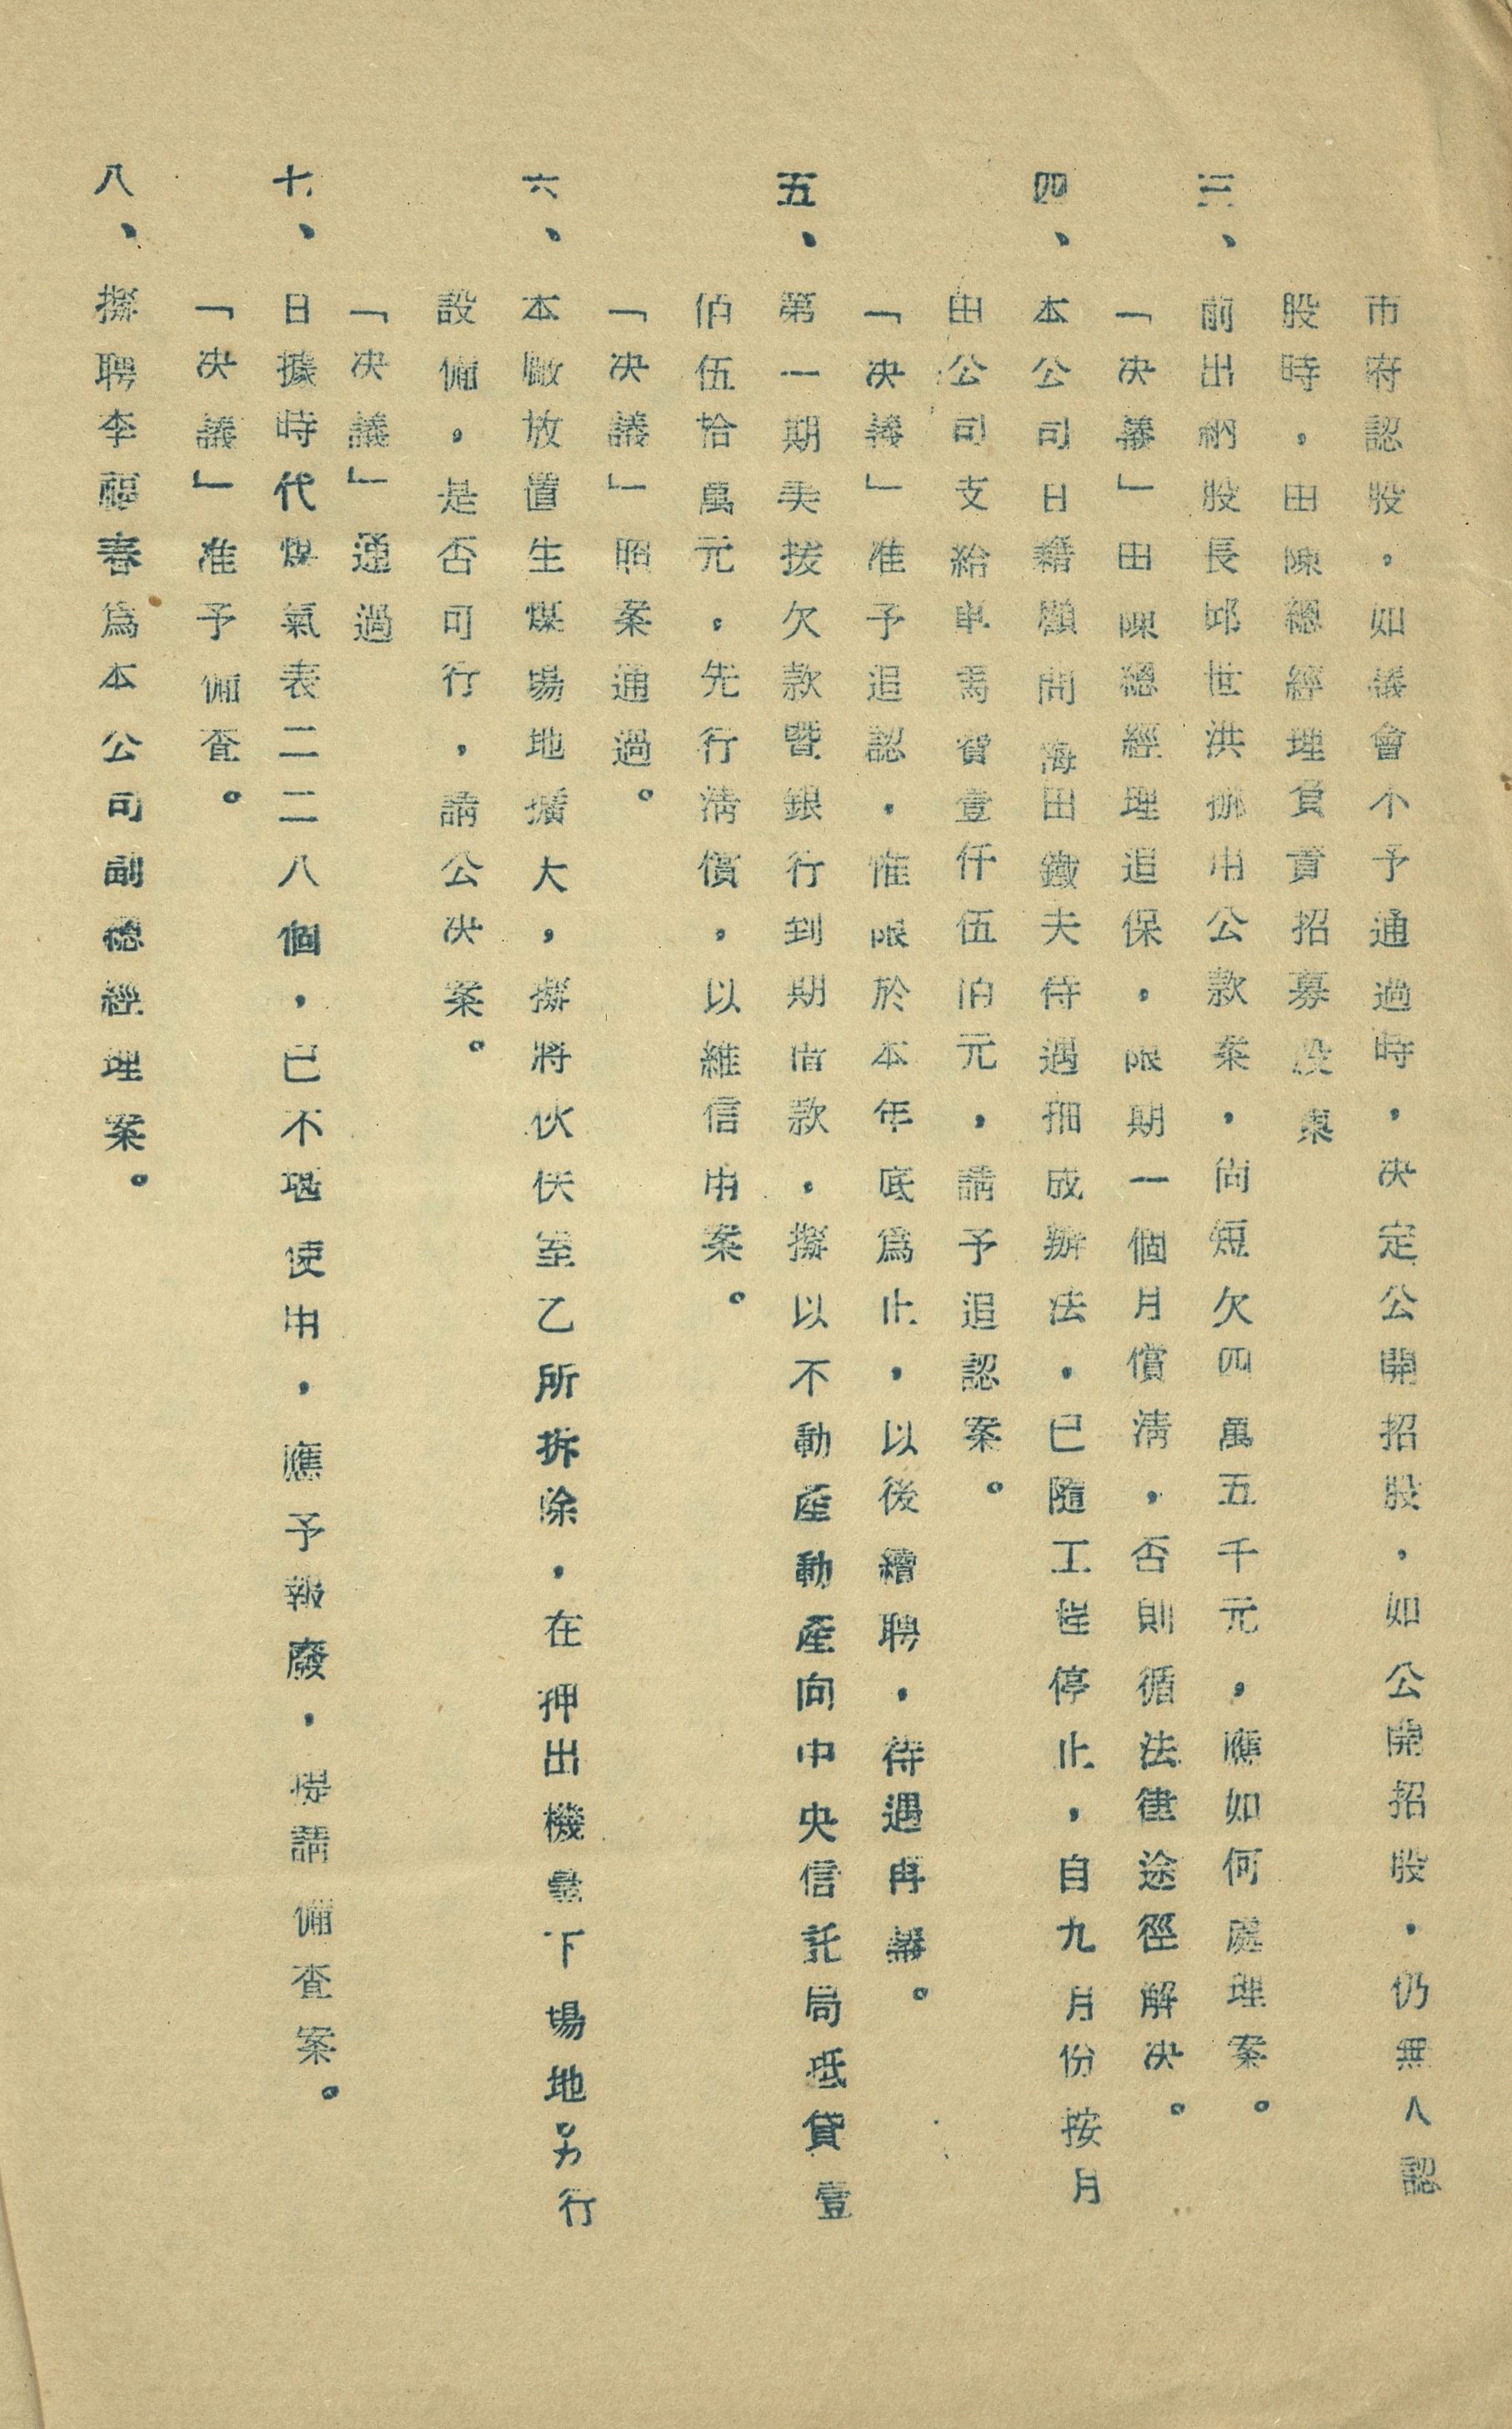 市府認股，如議會不予通過時，决定公開招股，如公開招股，仍無人認
股時，由陳總經理負責招募股東
三、前出納股長邱世洪挪用公款案，尚短欠四萬五千元，應如何處理案。
「决議」由陳總經理追保，限期一個月償清，否則循法律途徑解决。
四、本公司日籍顧問海田鐵夫待遇捆成辦法，已隨工程停止，自九月份按月
由公司支給車馬費壹仟伍佰元，請予追認案。
「决議」准予追認，惟限於本年底爲止，以後續聘，待遇再議。
五、第一期美援欠款暨銀行到期借款，擬以不動產動產向中央信託局抵貸壹
佰伍拾萬元，先行清償，以維信用案。
「决議」照案通過。
六、本廠放置生煤場地擴大，擬將伙伕室乙所拆除，在押出機壘下場地另行
設備，是否可行，請公决案。
「决議」通過
七、日據時代煤氣表二二八個，已不堪使用，應予報廢，提請備查案。
「决議」准予備查。
八、擬聘李福春爲本公司副總經理案。